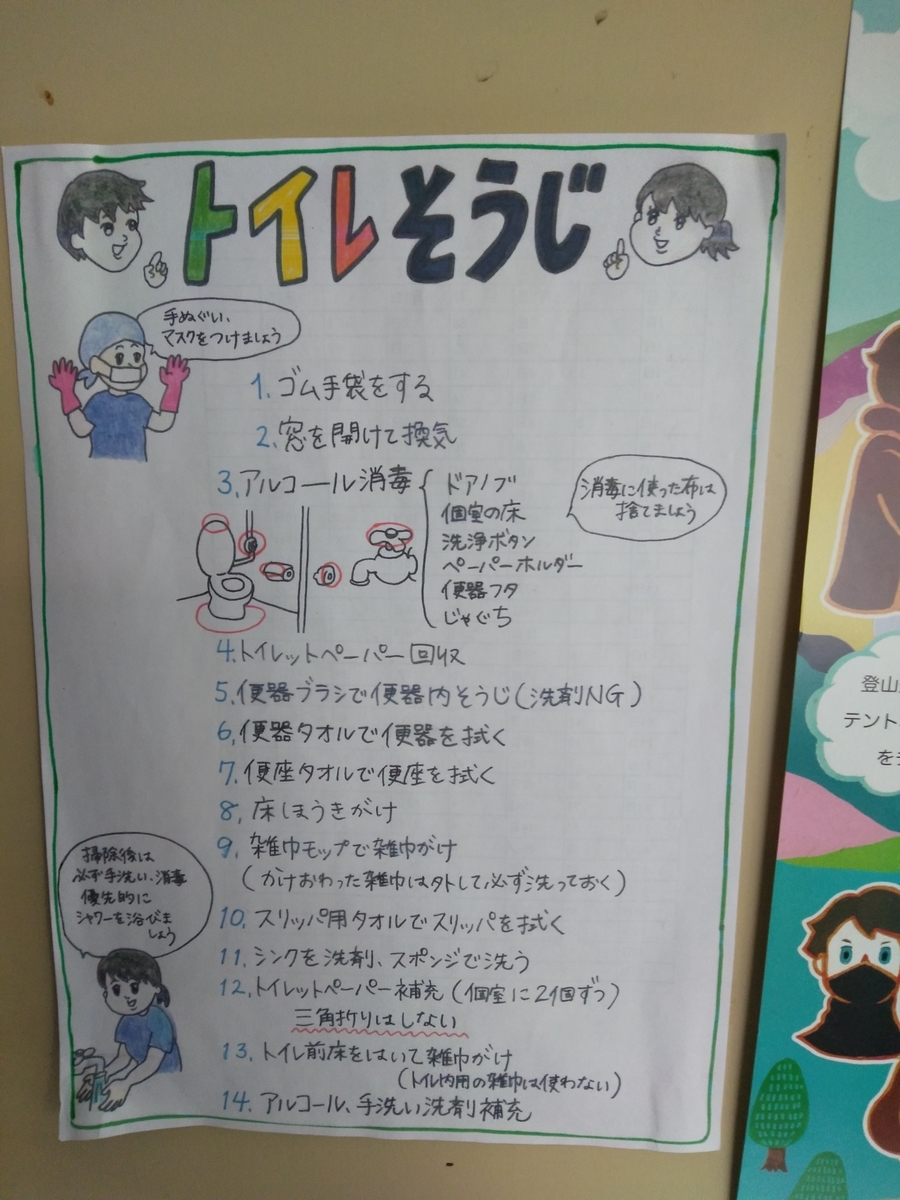 トイレそうじ
手ぬぐい、
マスクをつけましょう
1. ゴム手袋をする
2. 窓を開けて換気
3. アルコール消毒
ドアノブ
個室の床
洗浄ボタン
ペーパーホルダー
便器フタ
じゃぐち
消毒に使った布は
捨てましょう
4. トイレットペーパー回収
5. 便器ブラシで便器内そうじ(洗剤NG)
6. 便器タオルで便器を拭く
7. 便座タオルで便座を拭く
8. 床ほうきがけ
9. 雑巾モップで雑巾がけ
(かけおわった雑巾は外して必ず洗っておく)
10. スリッパ用タオルでスリッパを拭く
11. シンクを洗剤、スポンジで洗う
12. トイレットペーパー補充(個室に2個ずつ)
三角折りはしない
13. トイレ前床をはいて雑巾がけ
(トイレ内用の雑巾は使わない)
14. アルコール、手洗い洗剤補充
掃除後は
必ず手洗い、消毒
優先的に
シャワーを浴びま
しょう
登山
テント
を